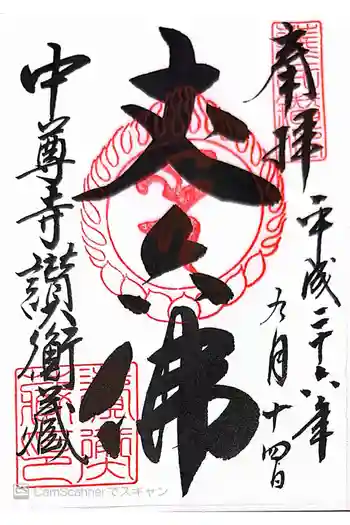 奉拝
平成二十六年
九月十四日
丈六佛
中尊寺讃衡蔵
CamScannerでスキャン